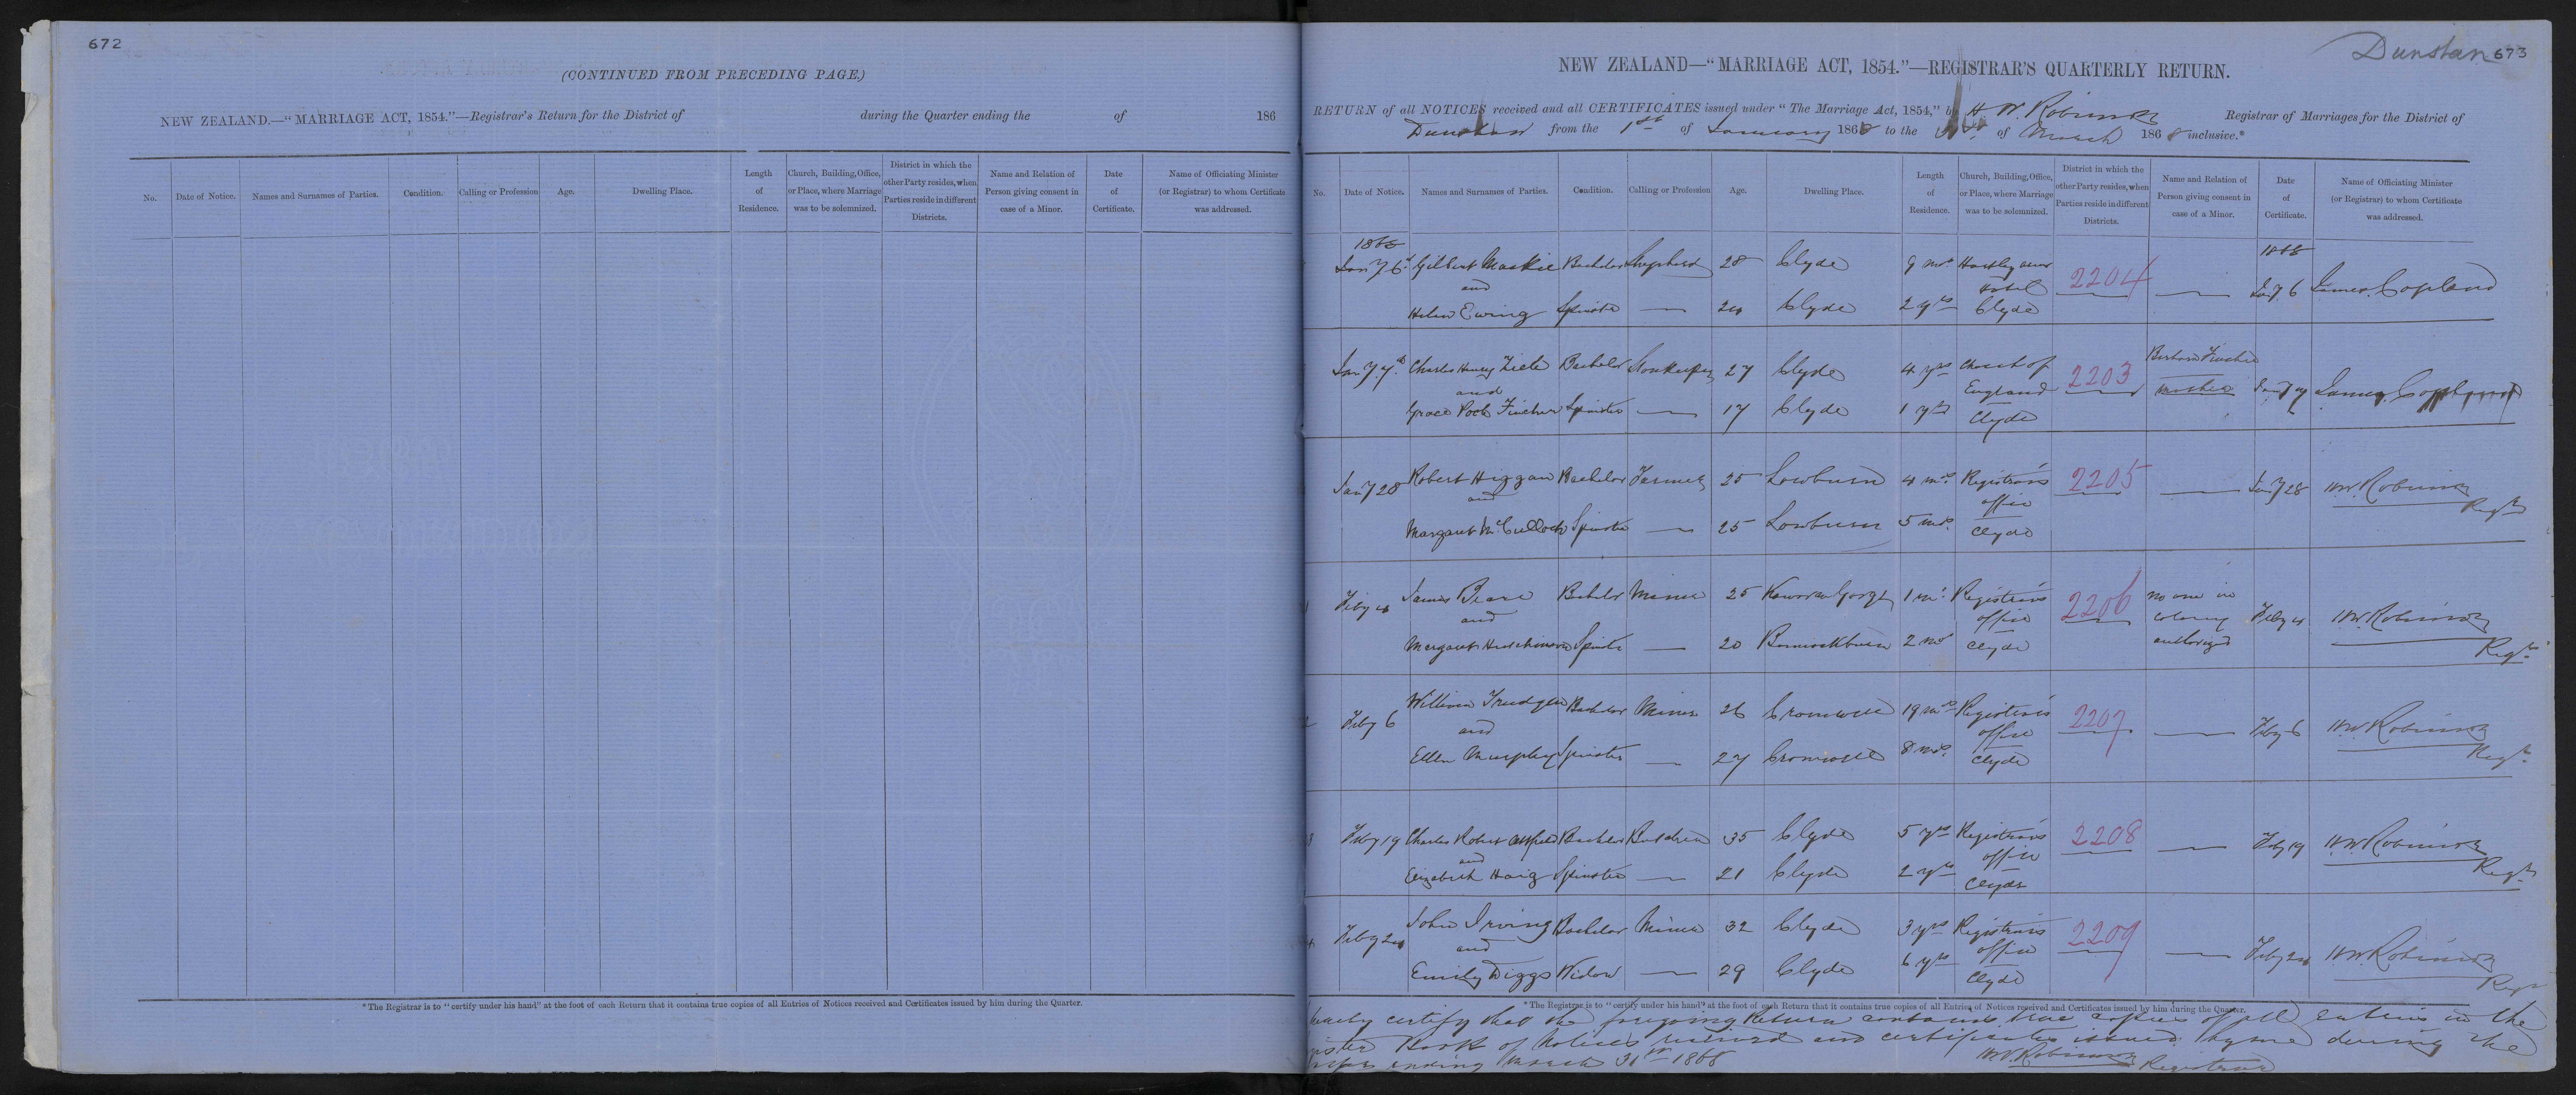 672
(CONTINUED FROM PRECEDING PAGE.)
NEW ZEALAND.—"MARRIAGE ACT, 1854."—Registrar's Return for the District of during the Quarter ending the of 186
No. Date of Notice. Names and Surnames of Parties. Condition. Calling or Profession Age. Dwelling Place. Length of Residence. Church, Building, Office, or Place, where Marriage was to be solemnized. District in which the other Party resides, when Parties reside in different Districts. Name and Relation of Person giving consent in case of a Minor. Date of Certificate. Name of Officiating Minister (or Registrar) to whom Certificate was addressed.
*The Registrar is to "certify under his hand" at the foot of each Return that it contains true copies of all Entries of Notices received and Certificates issued by him during the Quarter.
Dunstan 673
NEW ZEALAND—"MARRIAGE ACT, 1854."—REGISTRAR'S QUARTERLY RETURN.
RETURN of all NOTICES received and all CERTIFICATES issued under "The Marriage Act, 1854," by H. W. Robinson Registrar of Marriages for the District of
Dunstan from the 1st of January 1868 to the 31st of March 1868 inclusive.*
No. Date of Notice. Names and Surnames of Parties. Condition. Calling or Profession Age. Dwelling Place. Length of Residence. Church, Building, Office, or Place, where Marriage was to be solemnized. District in which the other Party resides, when Parties reside in different Districts. Name and Relation of Person giving consent in case of a Minor. Date of Certificate. Name of Officiating Minister (or Registrar) to whom Certificate was addressed.
1868 1868
Jany 6 Gilbert Mackie Bachelor Shepherd 28 Clyde 9 mos Hartley Arms Hotel Clyde 2204 — Jany 6 James Copland
and
Helen Ewing Spinster — 24 Clyde 2 yrs
Jany 7 Charles Henry Bachelor Storekeeper 27 Clyde 4 yrs Church of England Clyde 2203 Jany 7 James Copland
and
Grace Fincher Spinster — 17 Clyde 1 yr
Jany 28 Robert Higgan Bachelor Farmer 25 Lowburn 4 mos Registrar's office Clyde 2205 — Jany 28 H W Robinson Regr
and
Margaret McCulloch Spinster — 25 Lowburn 5 mos
Feby 4 James Beare Bachelor Miner 25 Kawarau Gorge 1 m Registrar's office Clyde 2206 no one in colony authorized Feby 4 H W Robinson Regr
and
Margaret Hutchinson Spinster — 20 Bannockburn 2 mos
Feby 6 William Trudgeon Bachelor Miner 26 Cromwell 19 mos Registrar's office Clyde 2207 — Feby 6 H W Robinson Regr
and
Ellen Murphy Spinster — 27 Cromwell 8 mos
Feby 19 Charles Robert Attfield Bachelor Butcher 35 Clyde 5 yrs Registrar's office Clyde 2208 — Feby 19 H W Robinson Regr
and
Elizabeth Haig Spinster — 21 Clyde 2 yrs
Feby 24 John Irving Bachelor Miner 32 Clyde 3 yrs Registrar's office Clyde 2209 — Feby 24 H W Robinson Regr
and
Emily Diggs Widow — 29 Clyde 6 yrs
*The Registrar is to "certify under his hand" at the foot of each Return that it contains true copies of all Entries of Notices received and Certificates issued by him during the Quarter.
certify that the foregoing Return contains true copies of all entries in the
Book of Notices received and certificates issued by me during the
ending March 31st 1868 H W Robinson Registrar